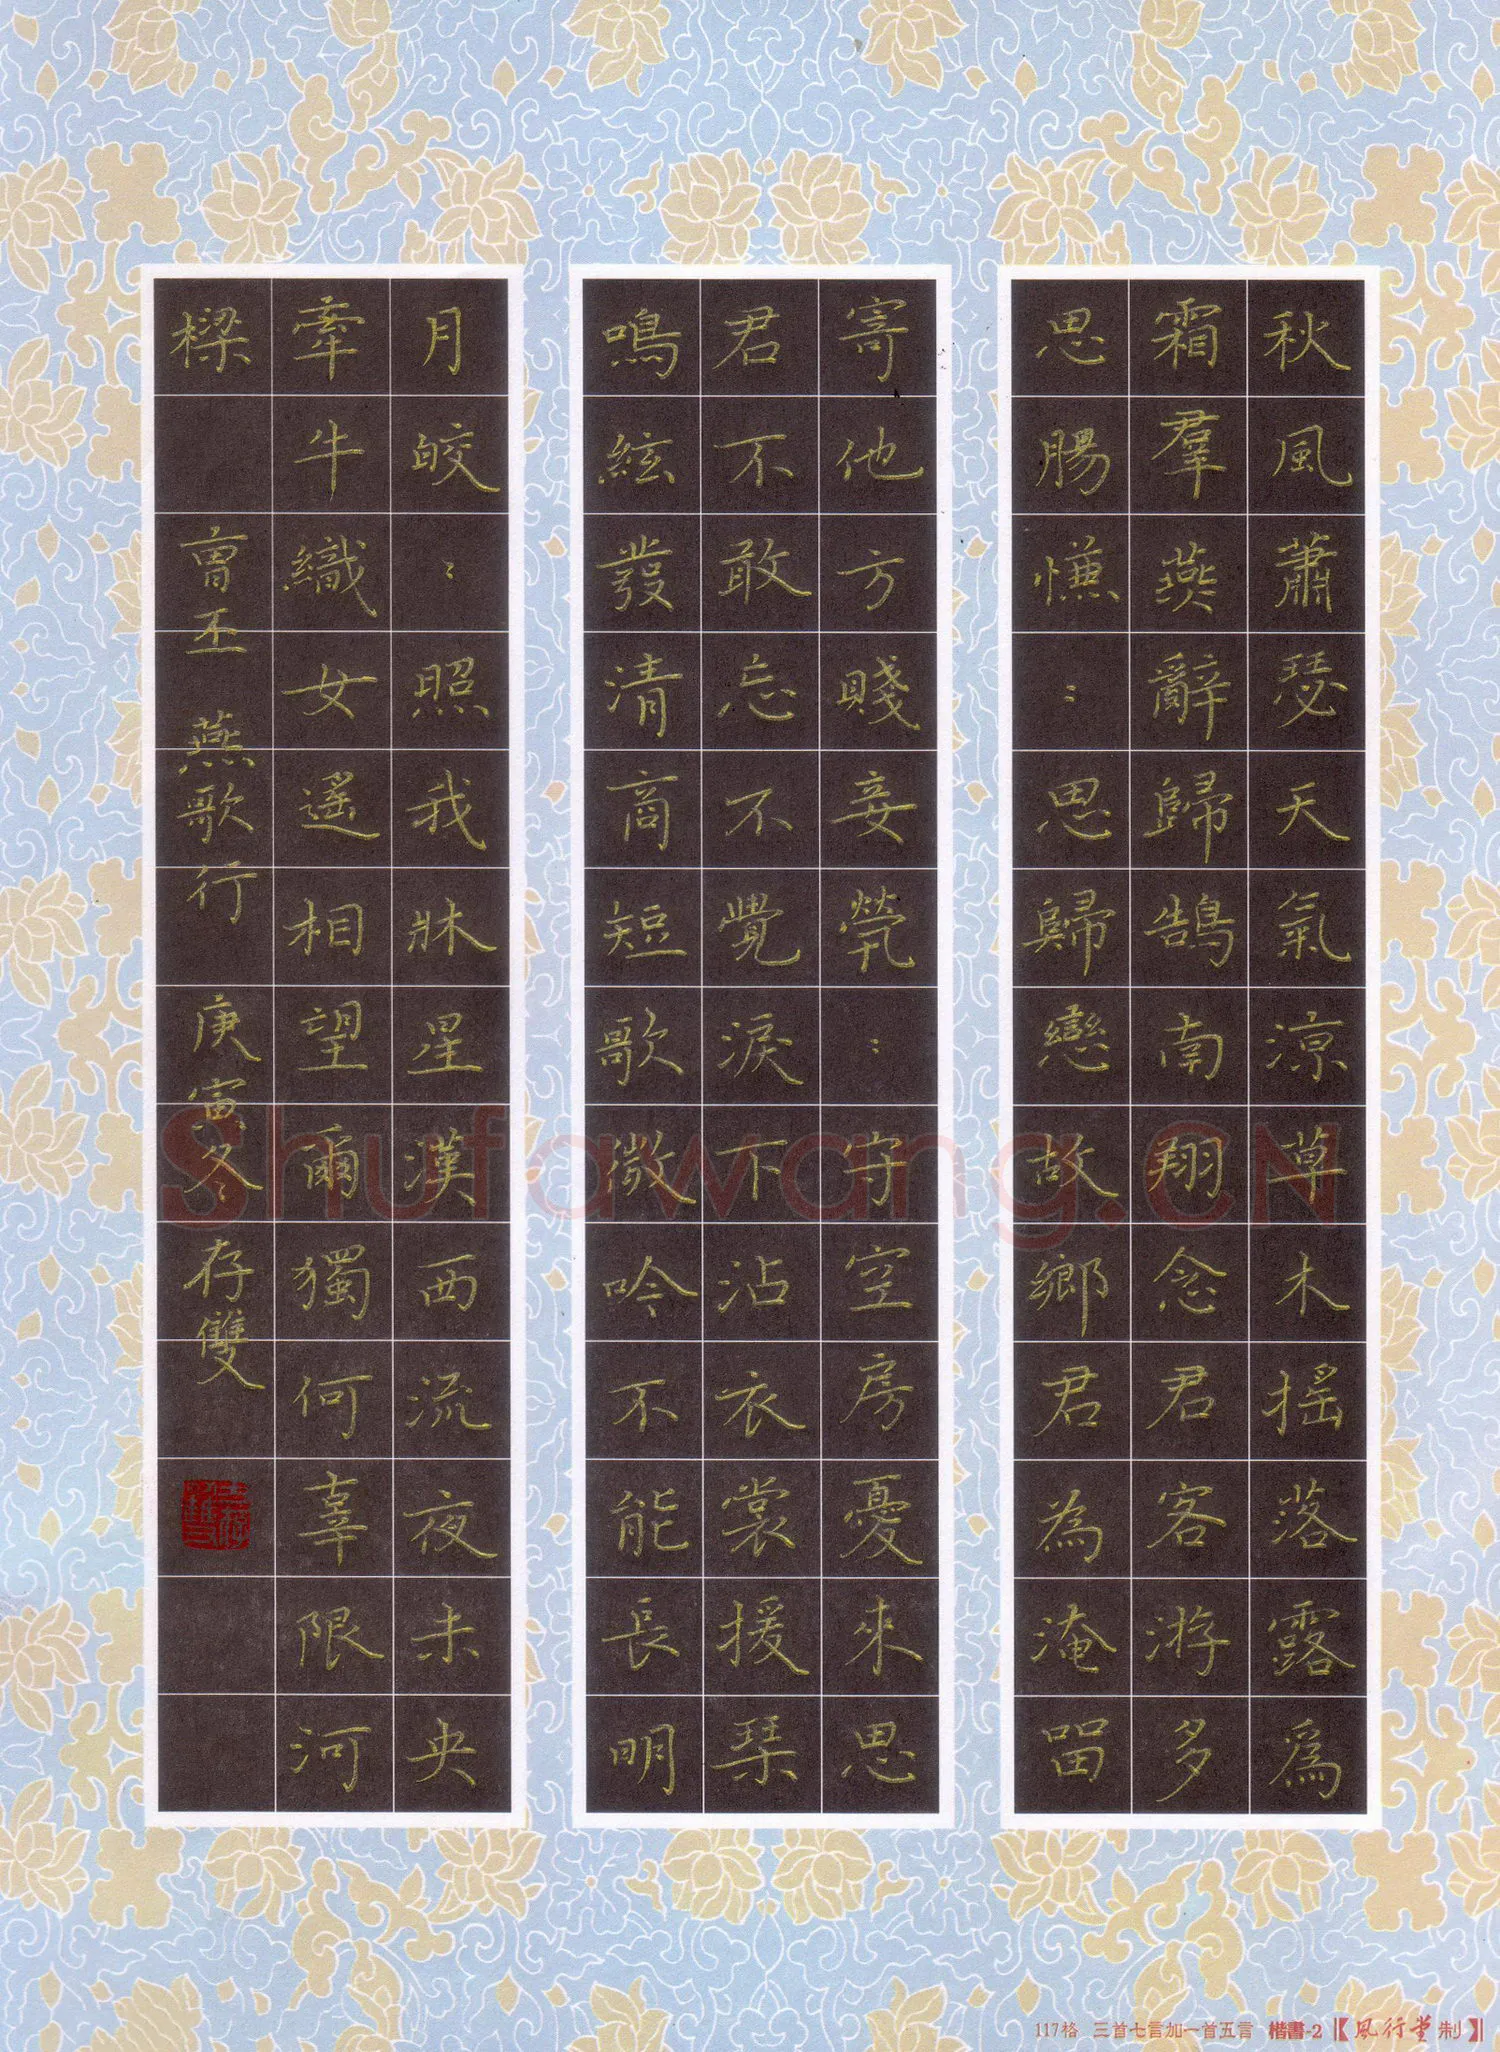 秋風蕭瑟天氣涼草木搖落露為
霜羣燕辭歸鵠南翔念君客游多
思腸慊：思歸戀故鄉君為淹留
寄他方賤妾煢：守空房憂來思
君不敢忘不覺淚下沾衣裳援琴
鳴絃發清商短歌微吟不能長明
月皎：照我牀星漢西流夜未央
牽牛織女遙相望爾獨何辜限河
樑 曹丕 燕歌行 庚寅冬 存雙
Shufawang.CN
117格 三首七言加一首五言 楷書-2【風行堂制】